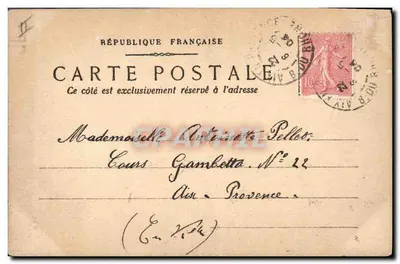 II
RÉPUBLIQUE FRANÇAISE
CARTE POSTALE
Ce côté est exclusivement réservé à l'adresse
Mademoiselle Antoinette Pellet
Cours Gambetta Nº 22
Aix - Provence
(En Ville)